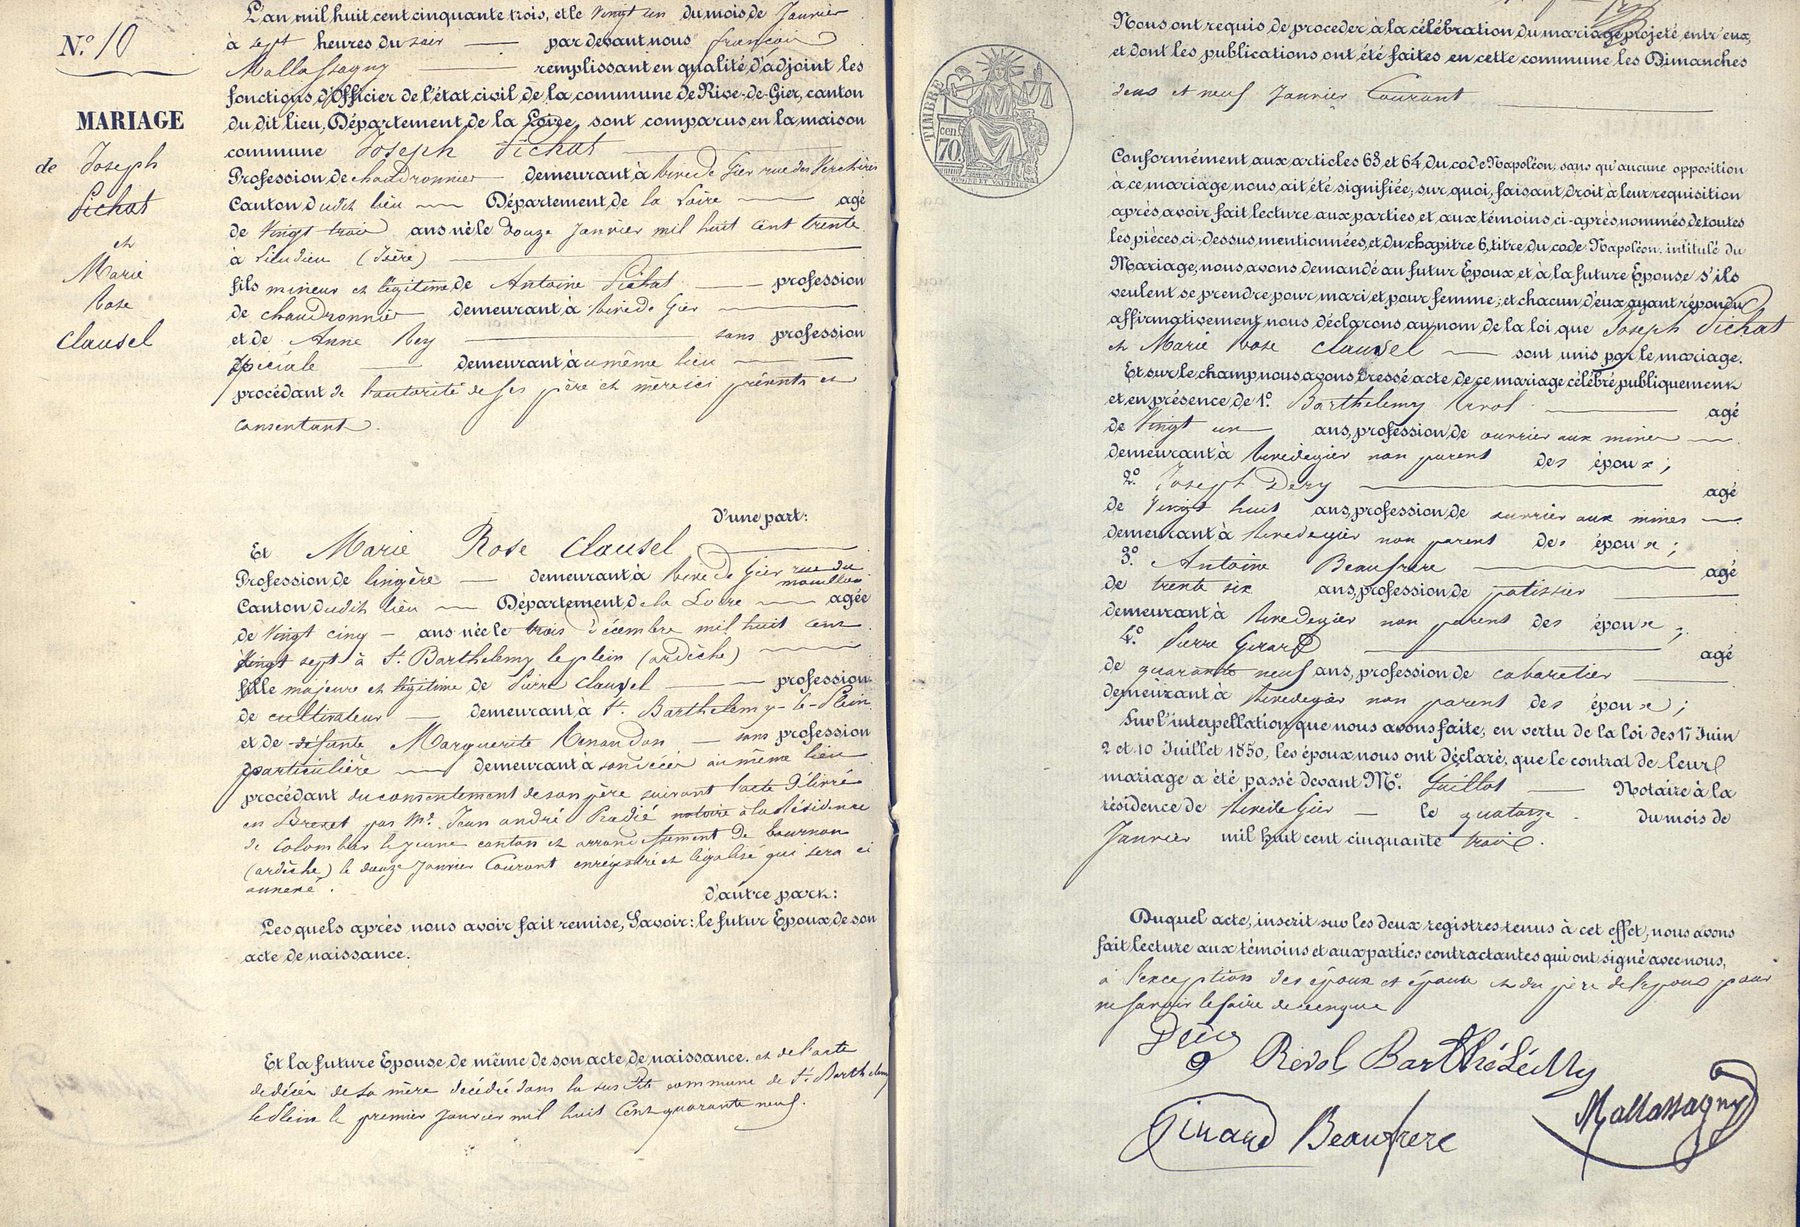 N.º 10
MARIAGE
de Joseph
Pichat
et
Marie
Rose
Clausel
L'an mil huit cent cinquante trois, et le vingt un du mois de Janvier
à sept heures du soir par devant nous françois
Mallassagny remplissant en qualité d'adjoint les
fonctions d'Officier de l'état civil de la commune de Rive-de-Gier, canton
du dit lieu, Département de la Loire, sont comparus en la maison
commune Joseph Pichat
Profession de chaudronnier demeurant à Rive de Gier rue des Verchères
Canton dudit lieu Département de la Loire agé
de Vingt trois ans né le douze Janvier mil huit cent trente
à (Isère)
fils mineur et légitime de Antoine Pichat profession
de chaudronnier demeurant à Rive de Gier
et de Anne Rey sans profession
spéciale demeurant au même lieu
procédant de l'autorité de ses père et mère ici présents et
consentant.
d'une part:
Et Marie Rose Clausel
Profession de lingère demeurant à Rive de Gier rue du
mouillon
Canton dudit lieu Département de la Loire agée
de Vingt cinq ans née le trois Décembre mil huit cent
Vingt sept à St. Barthelemy le plein (ardèche)
fille majeure et légitime de Pierre Clausel profession
de cultivateur demeurant à St. Barthelemy-le-Plein
et de défunte Marguerite sans profession
particulière demeurant à son décès au même lieu
procédant du consentement de son père suivant l'acte délivré
en Brevet par Me. Jean andré notaire à la Résidence
de Colombier le jeune canton et arrondissement de tournon
(ardèche) le douze Janvier Courant enregistré et légalisé qui sera ci
annexé.
d'autre part:
Lesquels après nous avoir fait remise, Savoir: le futur Epoux, de son
acte de naissance.
Et la future Epouse, de même de son acte de naissance. et de l'acte
de décès de sa mère décédée dans la sus dite commune de St. Barthelemy
le Plein le premier Janvier mil huit Cent quarante neuf.
Nous ont requis de proceder à la célébration du mariage projeté entr'eux,
et dont les publications ont été faites en cette commune les Dimanches
deux et neuf Janvier Courant
TIMBRE
cen
70
Conformément aux articles 63 et 64 du code Napoléon, sans qu'aucune opposition
à ce mariage nous ait été signifiée; sur quoi, faisant droit à leur requisition
après avoir fait lecture aux parties et aux témoins ci-après nommés de toutes
les pièces ci-dessus mentionnées, et du chapitre 6, titre du code Napoléon, intitulé du
Mariage, nous avons demandé au futur Epoux et à la future Epouse s'ils
veulent se prendre pour mari et pour femme; et chacun d'eux ayant répondu
affirmativement, nous déclarons au nom de la loi, que Joseph Pichat
et Marie Rose Clausel sont unis par le mariage.
Et sur le champ, nous avons dressé acte de ce mariage célébré publiquement
et en présence de 1º. Barthelemy Revol agé
de Vingt un ans, profession de ouvrier aux mines
demeurant à Rivedegier non parent des époux;
2º. Joseph Dery agé
de Vingt huit ans, profession de ouvrier aux mines
demeurant à Rivedegier non parent des époux;
3º. Antoine Beaufrere agé
de trente six ans, profession de patissier
demeurant à Rivedegier non parent des époux;
4º. Pierre Girard agé
de quarante neuf ans, profession de cabaretier
demeurant à Rivedegier non parent des époux;
Sur l'interpellation que nous avons faite, en vertu de la loi des 17 Juin
2 et 10 Juillet 1850, les époux nous ont déclaré, que le contrat de leur
mariage a été passé devant Me. Guillot Notaire à la
résidence de Rive de Gier le quatorze du mois de
Janvier mil huit cent cinquante trois.
Duquel acte, inscrit sur les deux registres tenus à cet effet, nous avons
fait lecture aux témoins et aux parties contractantes qui ont signé avec nous,
à l'exception des époux et épouse et du père de l'époux pour
ne savoir le faire de ce enquis
Revol Barthélémy
Girard Beaufrere
Mallassagny